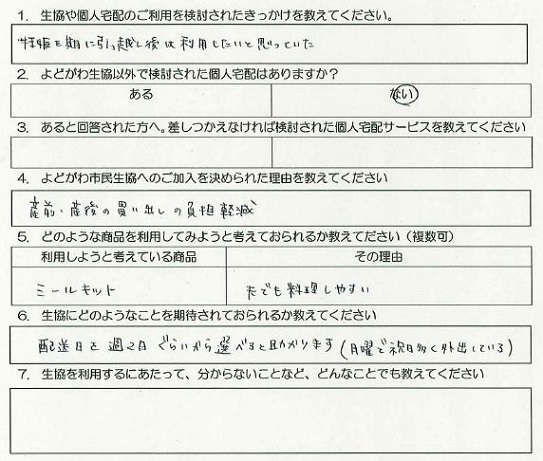 1. 生協や個人宅配のご利用を検討されたきっかけを教えてください。
妊娠を期に引っ越し後は利用したいと思っていた
2. よどがわ生協以外で検討された個人宅配はありますか?
ある ない
3. あると回答された方へ。差しつかえなければ検討された個人宅配サービスを教えてください
4. よどがわ市民生協へのご加入を決められた理由を教えてください
産前、産後の買い出しの負担軽減
5. どのような商品を利用してみようと考えておられるか教えてださい(複数可)
利用しようと考えている商品 その理由
ミールキット 夫でも料理しやすい
6. 生協にどのようなことを期待されておられるか教えてください
配送日を週2日ぐらいから選べると助かります(月曜で祝日多く外出している)
7. 生協を利用するにあたって、分からないことなど、どんなことでも教えてください